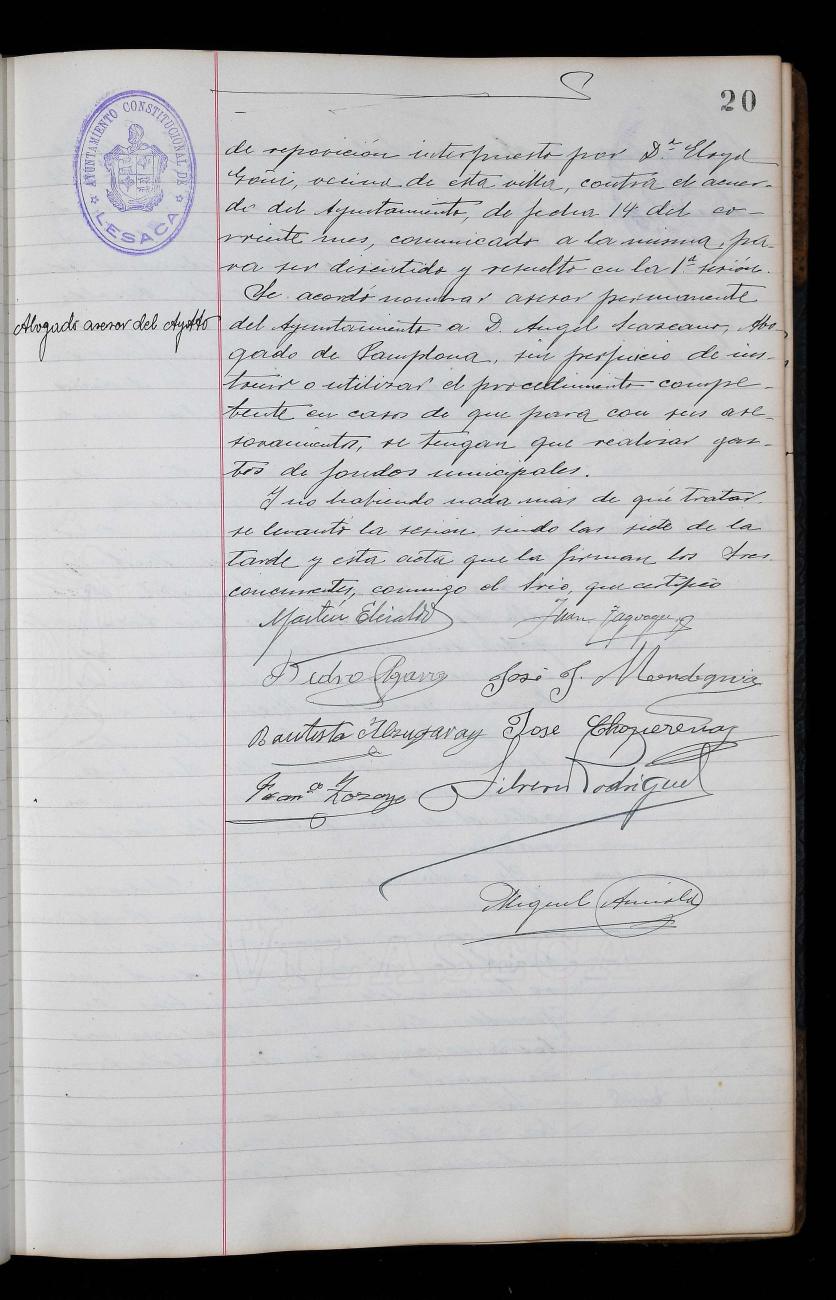 20
AYUNTAMIENTO CONSTITUCIONAL DE
LESACA
de reposición interpuesto por D.ª Eloya
Goñi, vecina de esta villa, contra el acuer-
do del Ayuntamiento, de fecha 14 del co-
rriente mes, comunicado a la misma, pa-
ra ser discutido y resuelto en la 1ª sesión.
Abogado asesor del Aytto
Se acordó nombrar asesor permanente
del Ayuntamiento a D. Angel Lazcano, Abo-
gado de Pamplona, sin perjuicio de ins-
truir o utilizar el procedimiento compe-
tente en casos de que para con sus ase-
soramientos, se tengan que realizar gas-
tos de fondos municipales.
Y no habiendo nada más de que tratar
se levantó la sesión siendo las siete de la
tarde y esta acta que la firman los Sres.
concurrentes, conmigo el Srio, que certifico
Martín
Juan
Pedro
José J. Mendeguia
Bautista Alzugaray
Jose Choperena
Franco
Silverio Rodriguez
Miguel